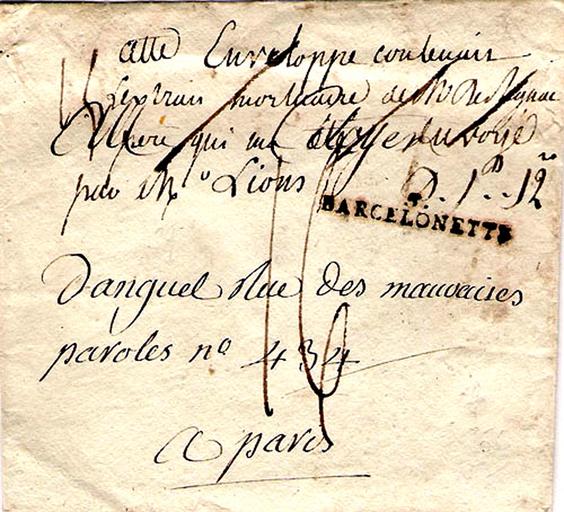 cette Enveloppe contenait
L'extrait mortuaire de Mr
qui m'a été envoyé
par Mr Lions D. 1. 12
BARCELONETTE
Danguel Rue des mauvaises
paroles n° 434
a paris